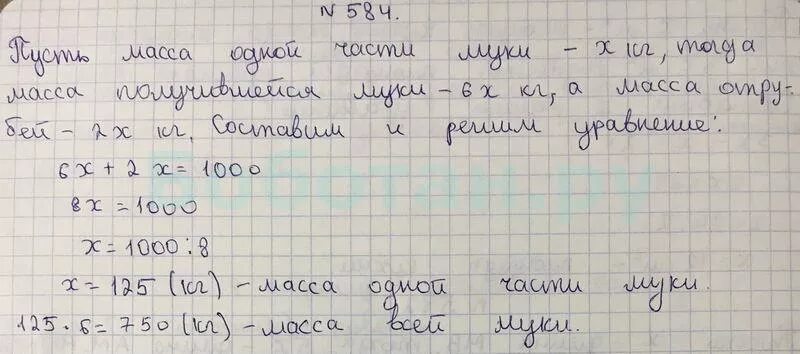 N 584.
Пусть масса одной части муки – x кг, тогда
масса получившейся муки – 6x кг, а масса отру-
бей – 2x кг. Составим и решим уравнение:
6x + 2x = 1000
8x = 1000
x = 1000 : 8
x = 125 (кг) – масса одной части муки.
125 · 6 = 750 (кг) – масса всей муки.